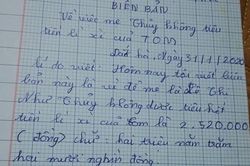 BIÊN BẢN
Về việc mẹ Thủy không tiêu
tiền lì xì của TOM
Đất hà, Ngày 31/1/2020
Lí do viết: Hôm nay tôi viết Biên
bản này là vì để mẹ là Lê Thị
Như Thủy không được tiêu hết
tiền lì xì của Tom là 2.520.000
(đồng) chữ hai triệu năm trăm
hai mươi nghìn đồng